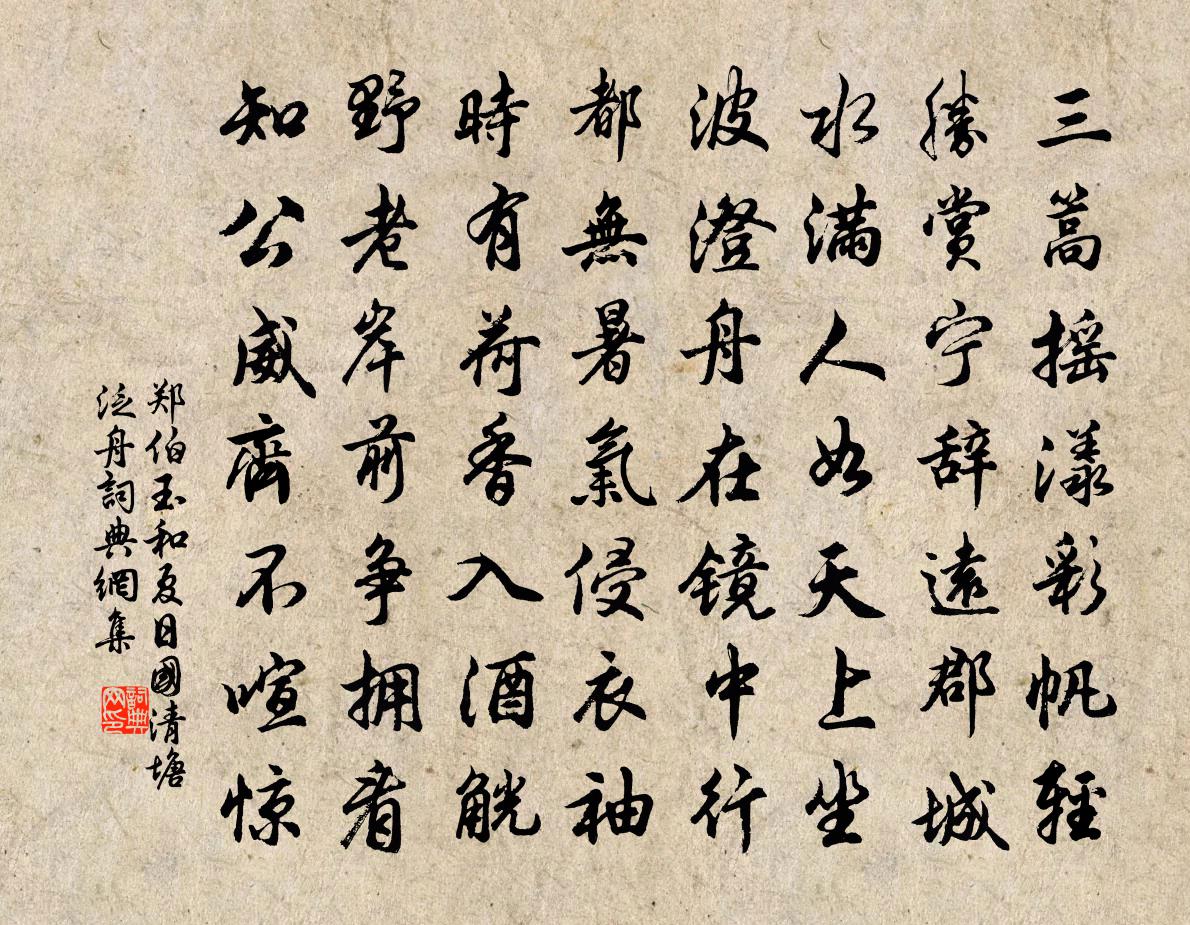 三篙摇漾彩帆輕
勝賞宁辞遠郡城
水满人如天上坐
波澄舟在镜中行
都無暑氣侵衣袖
時有荷香入酒觥
野老岸前争拥看
知公威齊不喧惊
郑伯玉和夏日國清塘
泛舟詞典網集
詞典
网印